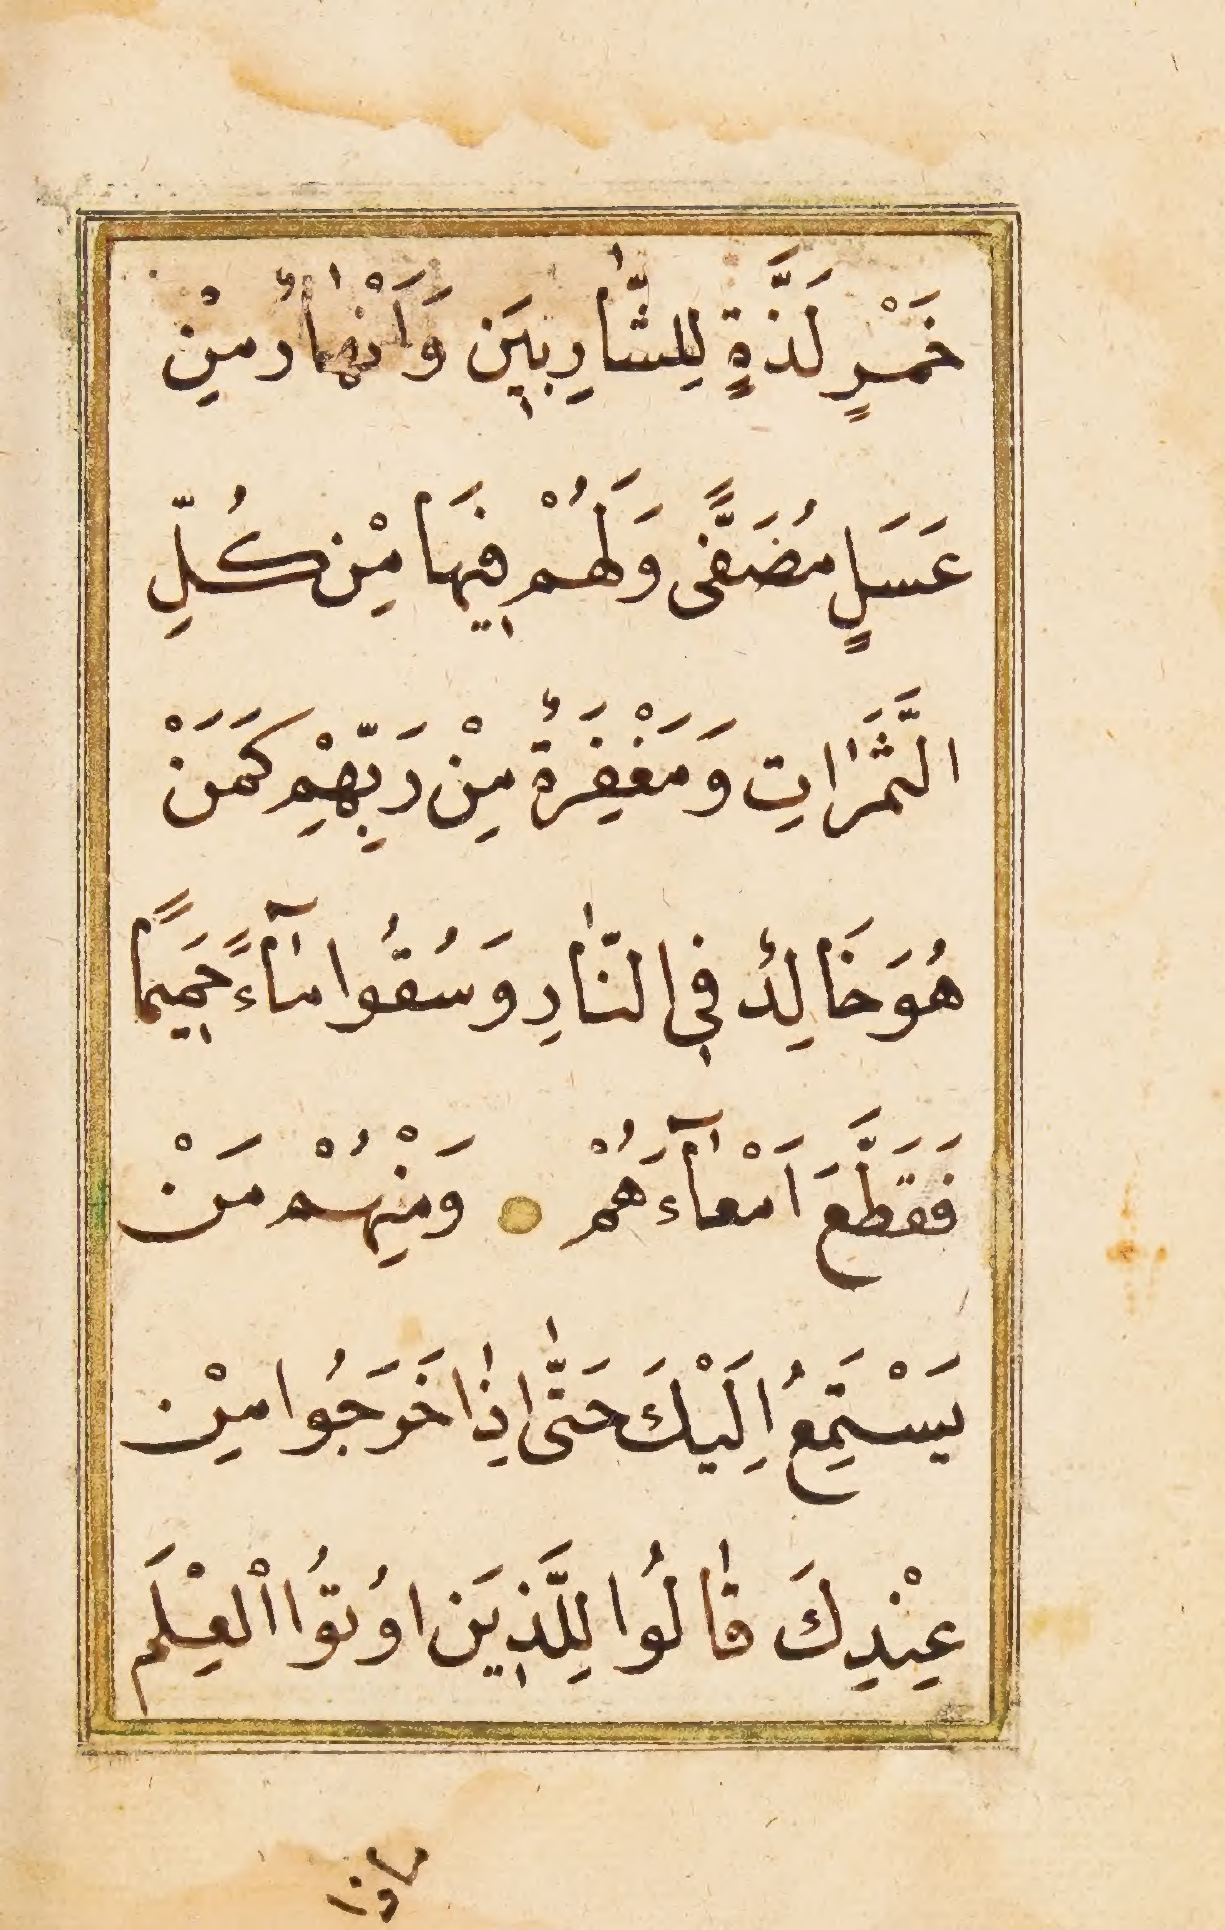 خَمْرٍ لَذَّةٍ لِلشّٰارِبٖينَ وَاَنْهٰارٌ مِنْ
عَسَلٍ مُصَفًّى وَلَهُمْ فٖيهَا مِنْ كُلِّ
الثَّمَرٰاتِ وَمَغْفِرَةٌ مِنْ رَبِّهِمْ كَمَنْ
هُوَ خَالِدٌ فٖي النّٰارِ وَسُقُوا مٰٓاءً حَمٖيمًا
فَقَطَّعَ اَمْعٰٓاءَهُمْ وَمِنْهُمْ مَنْ
يَسْتَمِعُ اِلَيْكَ حَتّٰى اِذٰا خَرَجُوا مِنْ
عِنْدِكَ قٰالُوا لِلَّذٖينَ اُوتُوا الْعِلْمَ
ماذا